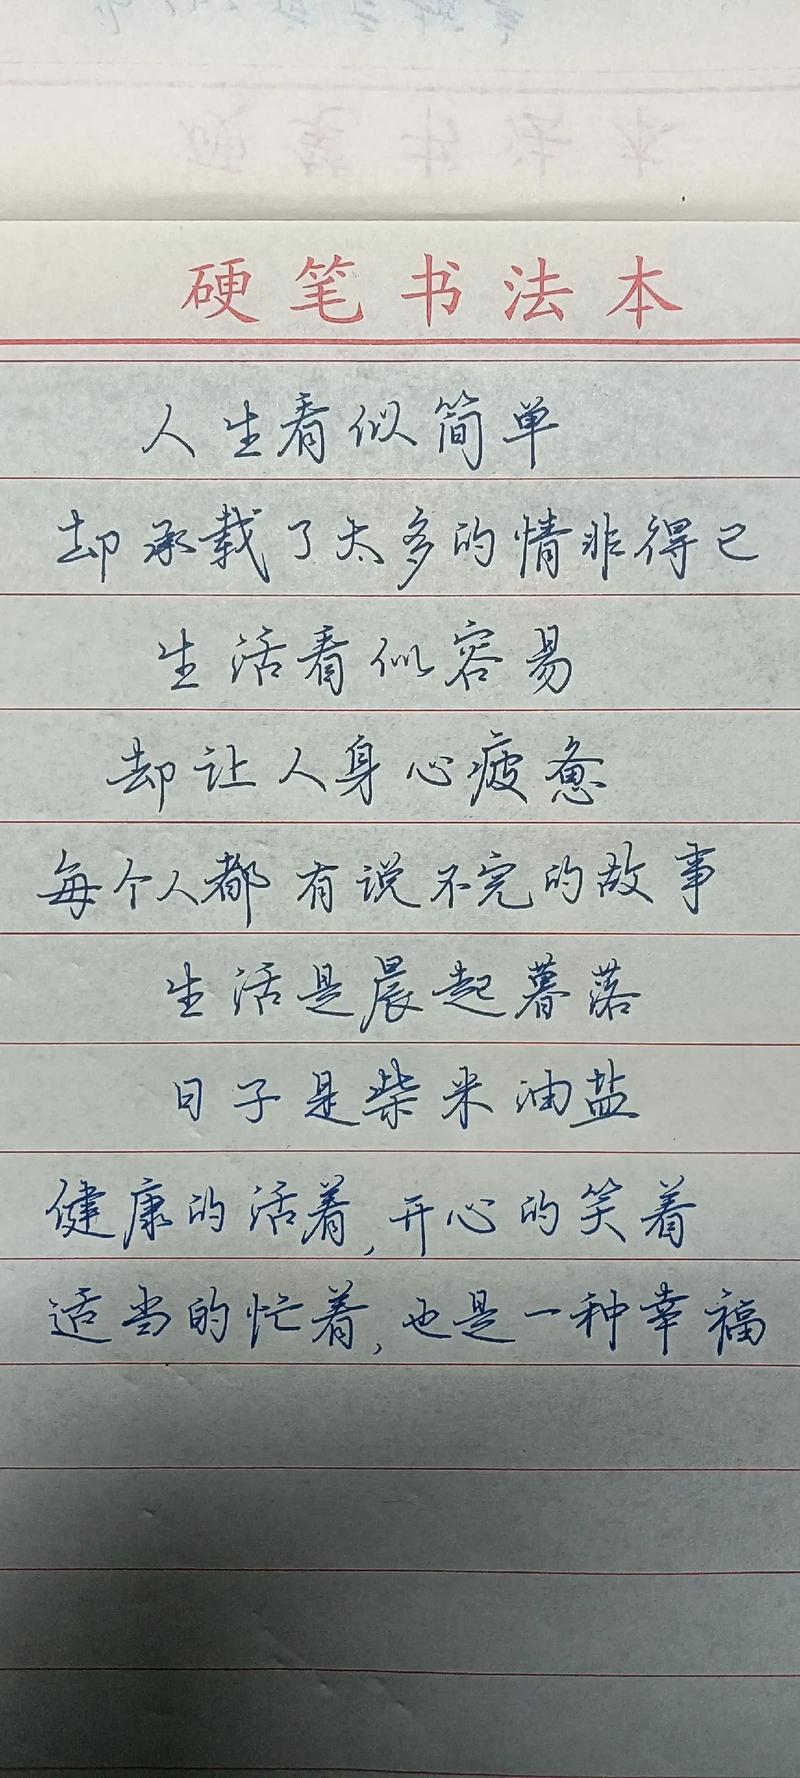 硬笔书法本
人生看似简单
却承载了太多的情非得已
生活看似容易
却让人身心疲惫
每个人都有说不完的故事
生活是晨起暮落
日子是柴米油盐
健康的活着,开心的笑着
适当的忙着,也是一种幸福